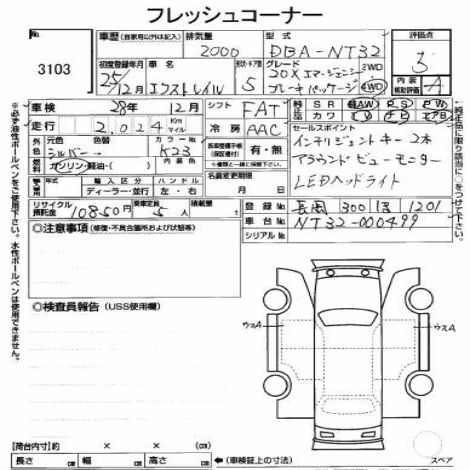 フレッシュコーナー
No. 3103
車歴(自家用以外は記入) 排気量 2000 型式 DBA-NT32 評価点 3
初度登録年月 25/12月 車名 エクストレイル 型・ドア数 5 グレード 20X エマージェンシーブレーキパッケージ 2WD 4WD 内装補助評価 A
車検 28年12月 シフト FAT 純正 SR AW PS PW
走行 2,024 Km マイル 冷房 AAC 装備 カワ TV エアB
元色 シルバー 色替 カラーNo. K23 有・無 セールスポイント
燃料 ガソリン・軽油・( ) 記録簿 有・無 インテリジェントキー 2本
乗車定員 5人 アラウンドビューモニター
年式 輸入区分 ハンドル 名義変更期限 月 日 LEDヘッドライト
ディーラー・並行 左・右
リサイクル預託金 10850円 積載量 登録No. 長岡 300 1201
車台No. NT32-000499
シリアルNo.
○注意事項(修復・不具合箇所および状態等)
○検査員報告(USS使用欄)
ウスA
ウスA
スペア
(荷台内寸)約 × × (cm)
長さ cm 幅 cm 高さ cm ←(車検証上の寸法)
※必ず油性ボールペンをご使用下さい。水性ボールペンは使用できません。